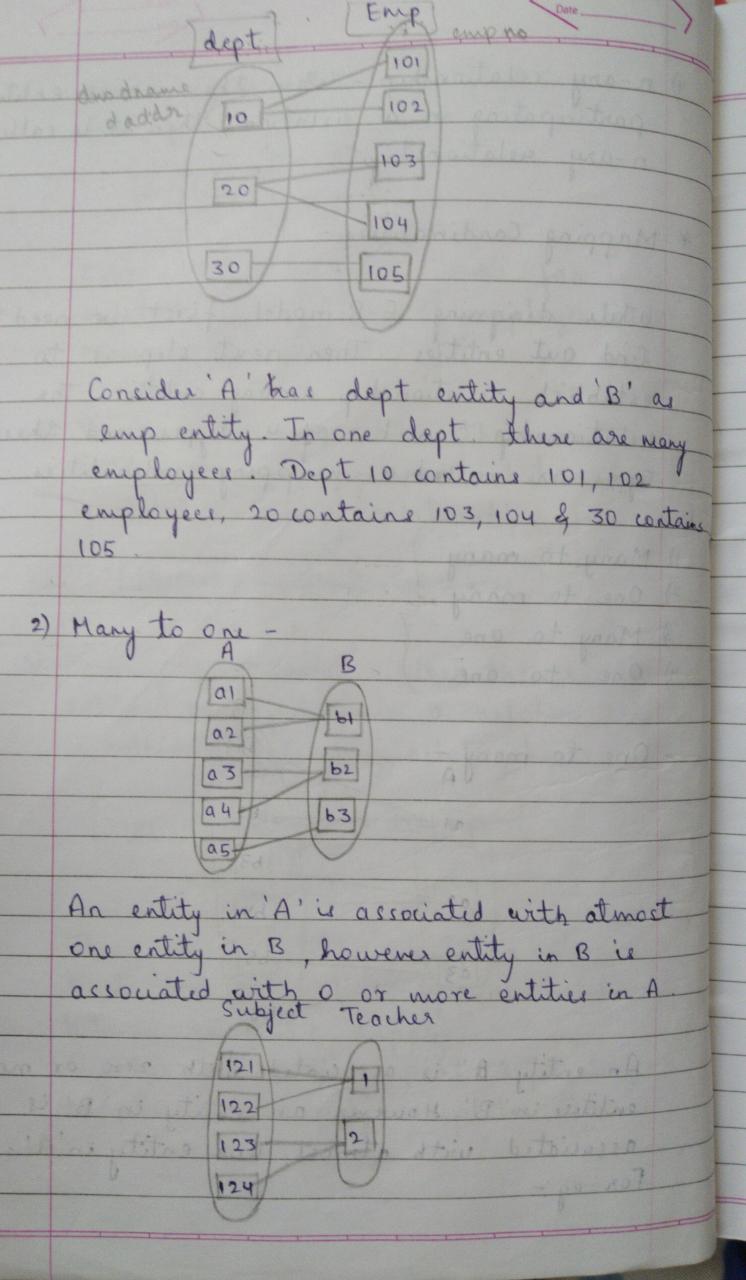 Date
dept
Emp
emp no
dname
daddr
10
20
30
101
102
103
104
105
Consider 'A' has dept entity and 'B' as
emp entity. In one dept. there are many
employees. Dept 10 contains 101, 102
employees, 20 contains 103, 104 & 30 contains
105.
2) Many to one -
A
B
a1
a2
a3
a4
a5
b1
b2
b3
An entity in 'A' is associated with atmost
one entity in B, however entity in B is
associated with 0 or more entities in A.
Subject Teacher
121
122
123
124
1
2